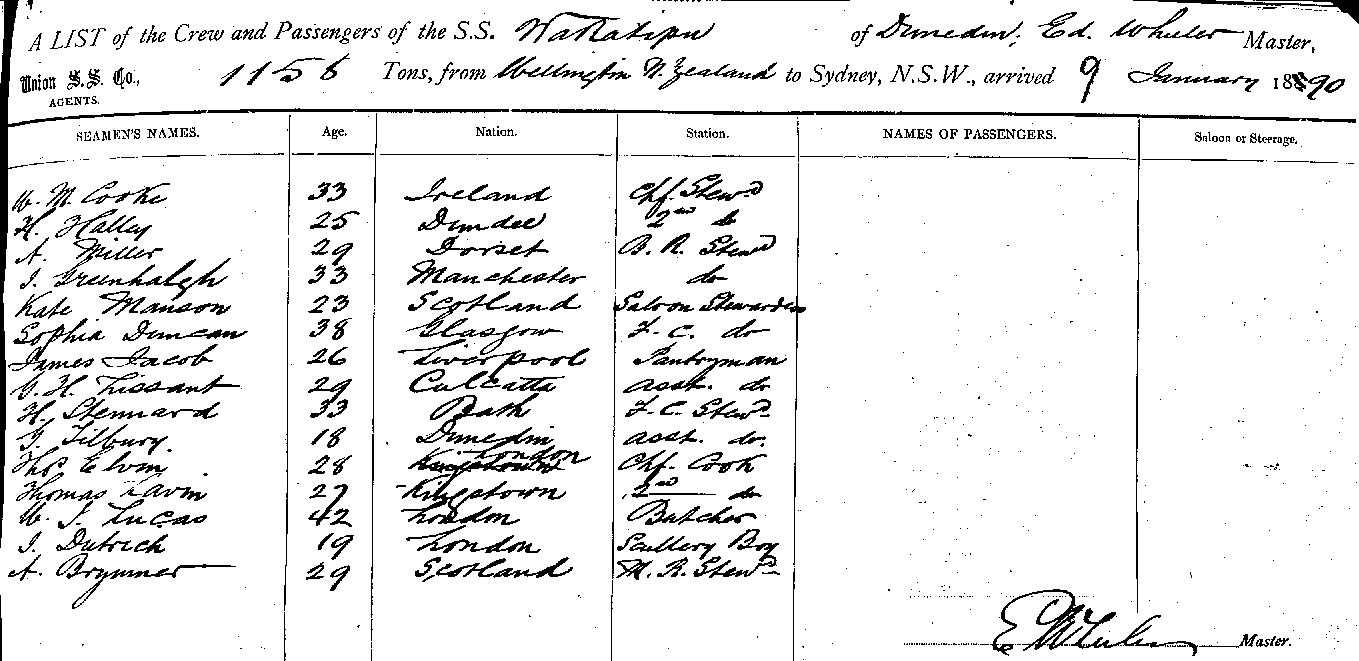 A LIST of the Crew and Passengers of the S.S. Wakatipu of Dunedin, Ed. Wheeler Master,
Union S.S. Co., AGENTS. 1158 Tons, from Wellington N. Zealand to Sydney, N.S.W., arrived 9 January 1890
SEAMEN'S NAMES. Age. Nation. Station. NAMES OF PASSENGERS. Saloon or Steerage.
W. M. Cooke 33 Ireland Chf. Stewd
H. Halley 25 Dundee 2nd do
A. Miller 29 Dorset B. R. Stewd
J. Greenhalgh 33 Manchester do
Kate Manson 23 Scotland Saloon Stewardess
Sophia Duncan 38 Glasgow F. C. do
James Jacob 26 Liverpool Pantryman
G. H. Lissant 29 Calcutta asst. do
H. Stennard 33 Bath F. C. Stewd
J. Tilbury 18 Dunedin asst. do.
Thos Elvin 28 London Chf. Cook
Thomas Lavin 27 Kingstown 2nd do
W. J. Lucas 42 London Butcher
J. Dutrich 19 London Scullery Boy
A. Brymner 29 Scotland M. R. Stewd
E Wheeler Master.